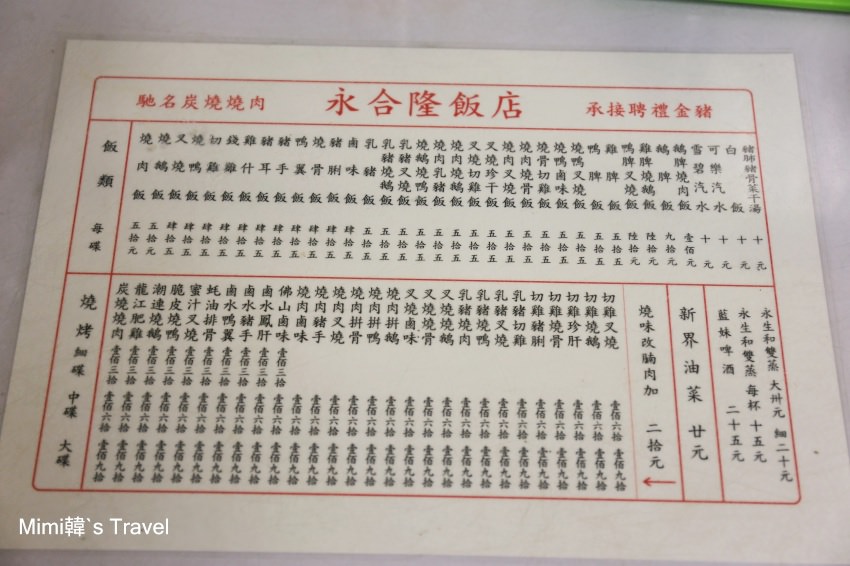 馳名炭燒燒肉
永合隆飯店
承接聘禮金豬
飯類 每碟
燒肉飯 五拾元
燒鵝飯
叉燒飯 肆拾五
燒鴨飯 肆拾五
切雞飯 肆拾五
錢雞飯 肆拾五
雞什飯 肆拾五
豬耳飯 肆拾五
豬手飯 肆拾五
鴨翼飯 肆拾五
燒骨飯 肆拾五
豬脷飯 肆拾五
鹵味飯 肆拾五
乳豬飯 五拾五
乳豬燒鵝飯 五拾五
乳豬叉鴨飯 五拾五
燒鵝叉燒飯 五拾五
燒肉乳豬飯 五拾五
燒肉燒鵝飯 五拾五
叉燒切雞飯 五拾五
叉燒珍干飯 五拾五
燒肉叉燒飯 五拾五
燒肉燒骨飯 五拾五
燒骨切雞飯 五拾五
燒鴨鹵味飯 五拾五
燒鴨叉燒飯 五拾五
鴨脾飯 五拾五
雞脾飯 五拾五
鴨脾叉燒飯 陸拾元
雞脾燒鵝飯 陸拾元
鵝脾飯 九拾元
鵝脾燒肉飯 壹佰元
雪碧汽水 十元
可樂汽水 十元
白飯 十元
豬肺豬骨菜干湯 十元
燒烤 細碟 中碟 大碟
炭燒燒肉 壹佰三拾 壹佰六拾 壹佰九拾
龍江肥雞 壹佰三拾 壹佰六拾 壹佰九拾
潮連燒鵝 壹佰三拾 壹佰六拾 壹佰九拾
脆皮燒鴨 壹佰三拾 壹佰六拾 壹佰九拾
蜜汁叉燒 壹佰三拾 壹佰六拾 壹佰九拾
蚝油排骨 壹佰三拾 壹佰六拾 壹佰九拾
鹵水鴨翼 壹佰三拾 壹佰六拾 壹佰九拾
鹵水豬手 壹佰三拾 壹佰六拾 壹佰九拾
鹵水鳳肝 壹佰三拾 壹佰六拾 壹佰九拾
佛山鹵味 壹佰三拾 壹佰六拾 壹佰九拾
燒肉鹵味 壹佰六拾 壹佰九拾
燒肉豬手 壹佰六拾 壹佰九拾
燒肉叉燒 壹佰六拾 壹佰九拾
燒肉拼骨 壹佰六拾 壹佰九拾
燒肉拼鴨 壹佰六拾 壹佰九拾
燒肉拼鵝 壹佰六拾 壹佰九拾
叉燒鹵味 壹佰六拾 壹佰九拾
叉燒燒骨 壹佰六拾 壹佰九拾
叉燒燒鵝 壹佰六拾 壹佰九拾
乳豬燒肉 壹佰六拾 壹佰九拾
乳豬燒鴨 壹佰六拾 壹佰九拾
乳豬叉燒 壹佰六拾 壹佰九拾
乳豬切雞 壹佰六拾 壹佰九拾
切雞豬脷 壹佰六拾 壹佰九拾
切雞燒骨 壹佰六拾 壹佰九拾
切雞珍肝 壹佰六拾 壹佰九拾
切雞燒鵝 壹佰六拾 壹佰九拾
切雞叉燒 壹佰六拾 壹佰九拾
燒味改腩肉加 二拾元
新界油菜 廿元
藍妹啤酒 二十五元
永生和雙蒸 每杯 十五元
永生和雙蒸 大卅元 細二十元
Mimi韓`s Travel